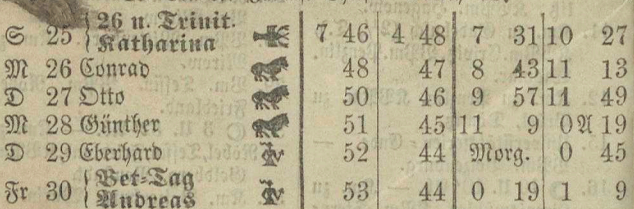 26 n. Trinit.
S 25 Katharina 7 46 4 48 7 31 10 27
M 26 Conrad 48 47 8 43 11 13
D 27 Otto 50 46 9 57 11 49
M 28 Günther 51 45 11 9 0 A 19
D 29 Eberhard 52 44 Morg. 0 45
Bet-Tag
Fr 30 Andreas 53 44 0 19 1 9